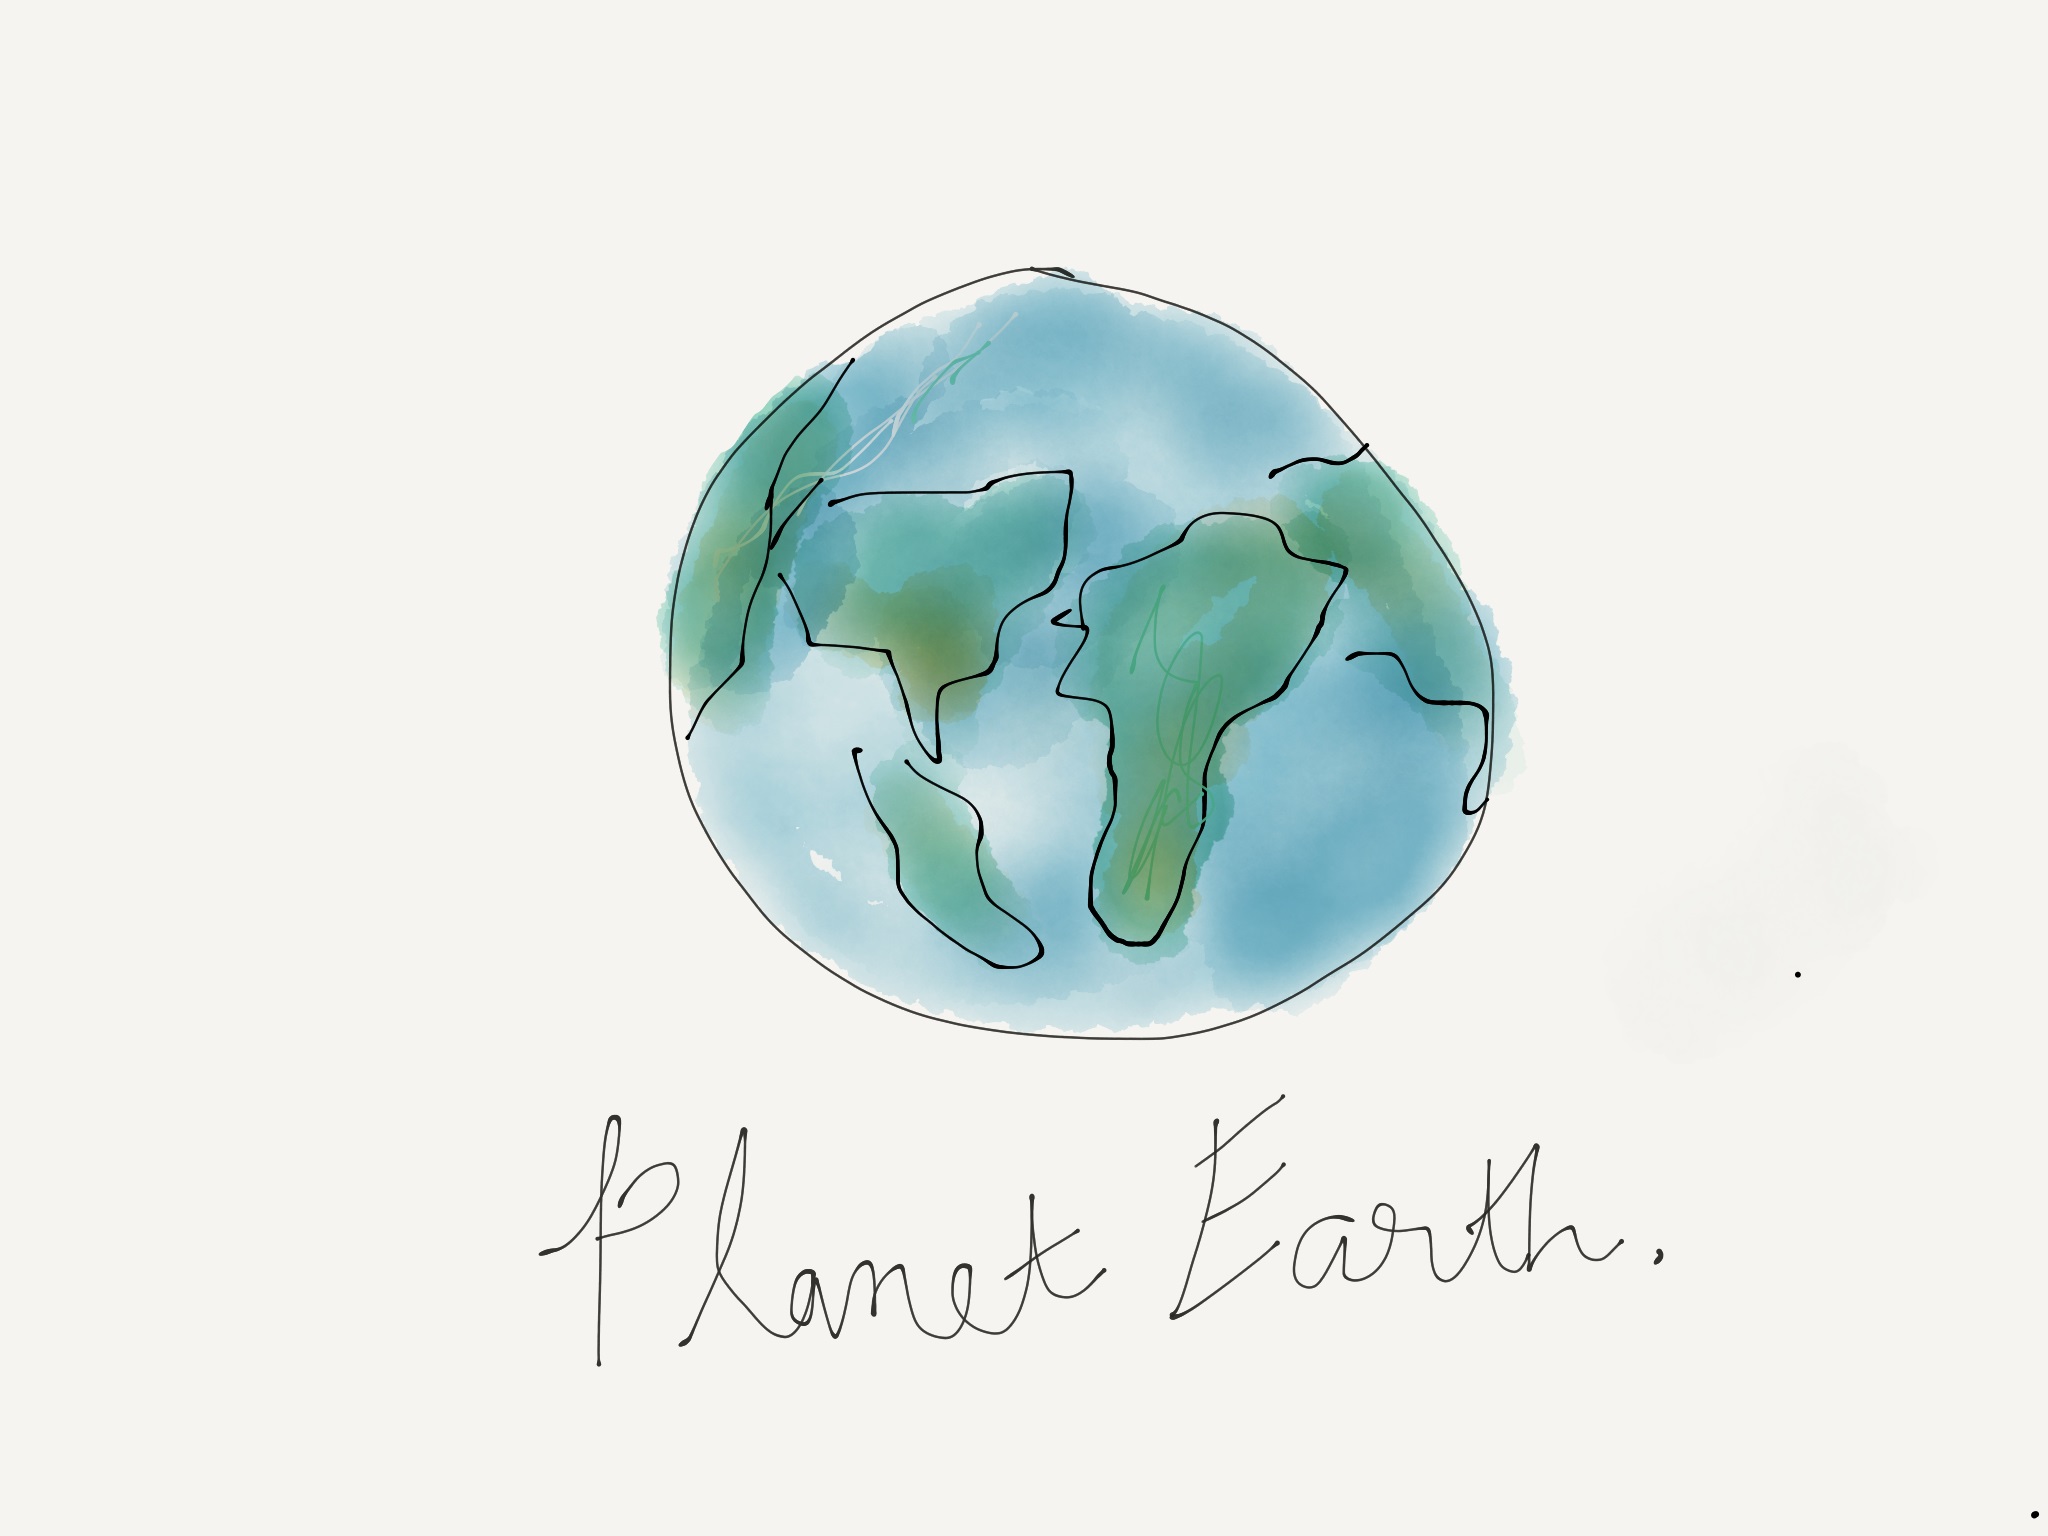 Planet Earth.